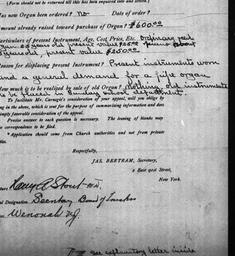 (Form should not be returned till this has been inquired into and settled.)
Has new Organ been ordered? No Date of order?
Amount already raised toward purchase of Organ? $600.00
Particulars of present Instrument, Age, Cost, Price, Etc. Ordinary reed
organ years old present value $
years old, present value $
Reason for displacing present Instrument? Present instruments worn
and a general demand for a pipe organ
How much is to be realized by sale of old Organ? Nothing, old instruments
to be placed in Sunday school department
To facilitate Mr. Carnegie's consideration of your appeal, will you oblige by
in the above, which is used for the purpose of
simply favorable consideration of the appeal.
Precise answer to each question is necessary. The leaving of blanks may
correspondence to be filed.
Application should come from Church authorities and not from private
Respectfully,
JAS. BERTRAM, Secretary,
2 East 91st Street,
New York.
Harry A Stout
Designation Secretary Board of Trustees
Wenonah NJ
See explanatory letter inside